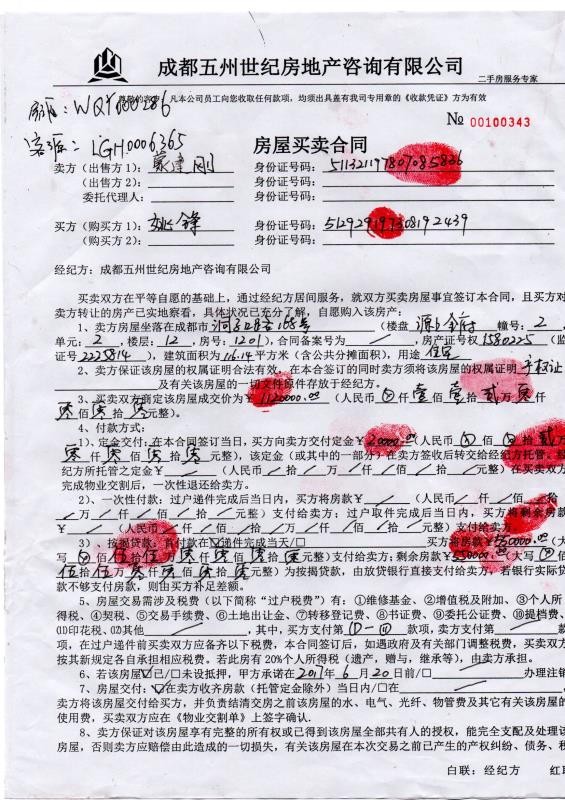 成都五州世纪房地产咨询有限公司
二手房服务专家
凡本公司员工向您收取任何款项，均须出具盖有我司专用章的《收款凭证》方为有效
房源：WQY000286
№ 00100343
客源：LGH0006365
房屋买卖合同
卖方（出售方1）： 身份证号码：
（出售方2）： 身份证号码：
委托代理人： 身份证号码：
买方（购买方1）：姚锋 身份证号码：
（购买方2）： 身份证号码：
经纪方：成都五州世纪房地产咨询有限公司
买卖双方在平等自愿的基础上，通过经纪方居间服务，就双方买卖房屋事宜签订本合同，且买方对
卖方转让的房产已实地察看，具体状况已充分了解，自愿购入该房产：
1、卖方房屋坐落在成都市 168号 （楼盘 幢号：2，
单元：2，楼层：12，房号：1201），合同备案号为 ，房产证号权1580225（监
证号2225814），建筑面积为116.14平方米（含公共分摊面积），用途 住宅
2、卖方保证该房屋的权属证明合法有效，在本合同签订的同时卖方须将该房屋的权属证明 产权证
及有关该房屋的一切文件原件存放于经纪方。
3、买卖双方商定该房屋成交价为￥1120000.00（人民币⊗仟壹佰壹拾贰万零仟
零佰零拾零元整）。
4、付款方式：
1）、定金交付：在本合同签订当日，买方向卖方交付定金￥20000.00（人民币⊗佰⊗拾贰万
零仟零佰零拾零元整），该定金（或其中的一部分）在卖方签收后转交给经纪方托管。经
纪方所托管之定金￥ （人民币 拾 万 仟 佰 拾 元整）在买卖双方
完成物业交割后，一次性退还给卖方。
2）、一次性付款：过户递件完成后当日内，买方将房款￥ （人民币 仟 佰 拾
万 仟 佰 拾 元整）支付给卖方；过户取件完成后当日内，买方将剩余房款
￥ （人民币 仟 佰 拾 万 仟 佰 拾 元整）支付给卖方。
3）、按揭付款：首付款在☑递件完成当天/□ 买方将房款￥550000.00（大
写⊗佰伍拾伍万零仟零佰零拾零元整）支付给卖方；剩余房款￥550000.00（大写⊗佰
伍拾伍万零仟零佰零拾零元整）为按揭贷款，由放贷银行直接支付给卖方，若银行实际贷
款不够支付房款，则由买方补足差额。
5、房屋交易需涉及税费（以下简称“过户税费”）有：①维修基金、②增值税及附加、③个人所
得税、④契税、⑤交易手续费、⑥土地出让金、⑦转移登记费、⑧书证费、⑨委托公证费、⑩提档费、
⑪印花税、⑫其他 ，其中，买方支付第①-⑫款项，卖方支付第 款
项，在过户递件前买卖双方应备齐以下税费，本合同签订后，如遇政府及有关部门调整税费，买卖双方
按其新规定各自承担相应税费。若此房有20%个人所得税（遗产，赠与，继承等），由卖方承担。
6、若该房屋☑已/□未设抵押，甲方承诺在2017年6月20日前/□ 办理注销
7、房屋交付：☑在卖方收齐房款（托管定金除外）当日内/□在
卖方将该房屋交付给买方，并负责结清交房之前该房屋的水、电气、光纤、物管费及其它有关该房屋的
使用费，买卖双方应在《物业交割单》上签字确认。
8、卖方保证对该房屋享有完整的所有权或已得到该房屋全部共有人的授权，能完全支配及处理该
房屋，否则卖方应赔偿由此造成的一切损失，有关该房屋在本次交易之前已产生的产权纠纷、债务、税
白联：经纪方 红联